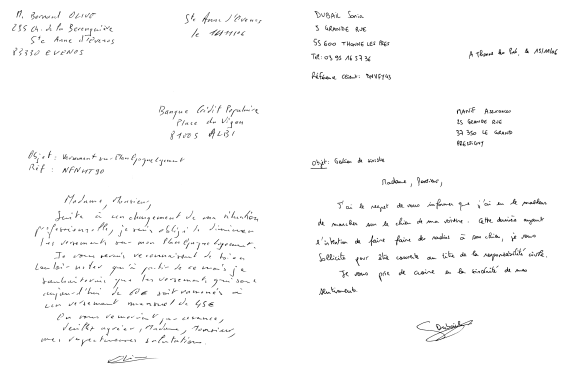 M. Bernard OLIVE
235 Ch. de la Berenguière
Ste Anne d'Evenos
83330 EVENOS
Ste Anne d'Evenos
le
Banque Crédit Populaire
Place du Vigan
81005 ALBI
Objet : Versement sur Plan Epargne Logement
Réf : NFNHT90
Madame, Monsieur,
Suite à un changement de ma situation
professionnelle, je suis obligé de diminuer
les versements sur mon Plan Epargne Logement.
Je vous serais reconnaissant de bien
vouloir noter qu'à partir de ce mois je
souhaiterais que les versements qui sont
aujourd'hui de 60€ soit ramenés à
un versement mensuel de 45€
En vous remerciant, par avance,
veuillez agréer, Madame, Monsieur,
mes respectueuses salutations.
DUBAIL Sonia
5 GRANDE RUE
55600 THONNE LES PRES
Tel: 03 95 16 57 36
Référence client:
A Thonne les Prés, le
MANIE Assurances
25 GRANDE RUE
37 350 LE GRAND
PRESSIGNY
Objet: Gestion de sinistre
Madame, Monsieur,
J'ai le regret de vous informer que j'ai eu le malheur
de marcher sur le chien de ma voisine. Cette dernière ayant
l'intention de faire faire des radios à son chien, je vous
sollicite pour être couverte au titre de la responsabilité civile.
Je vous prie de croire en la sincérité de mes
sentiments.
Dubail